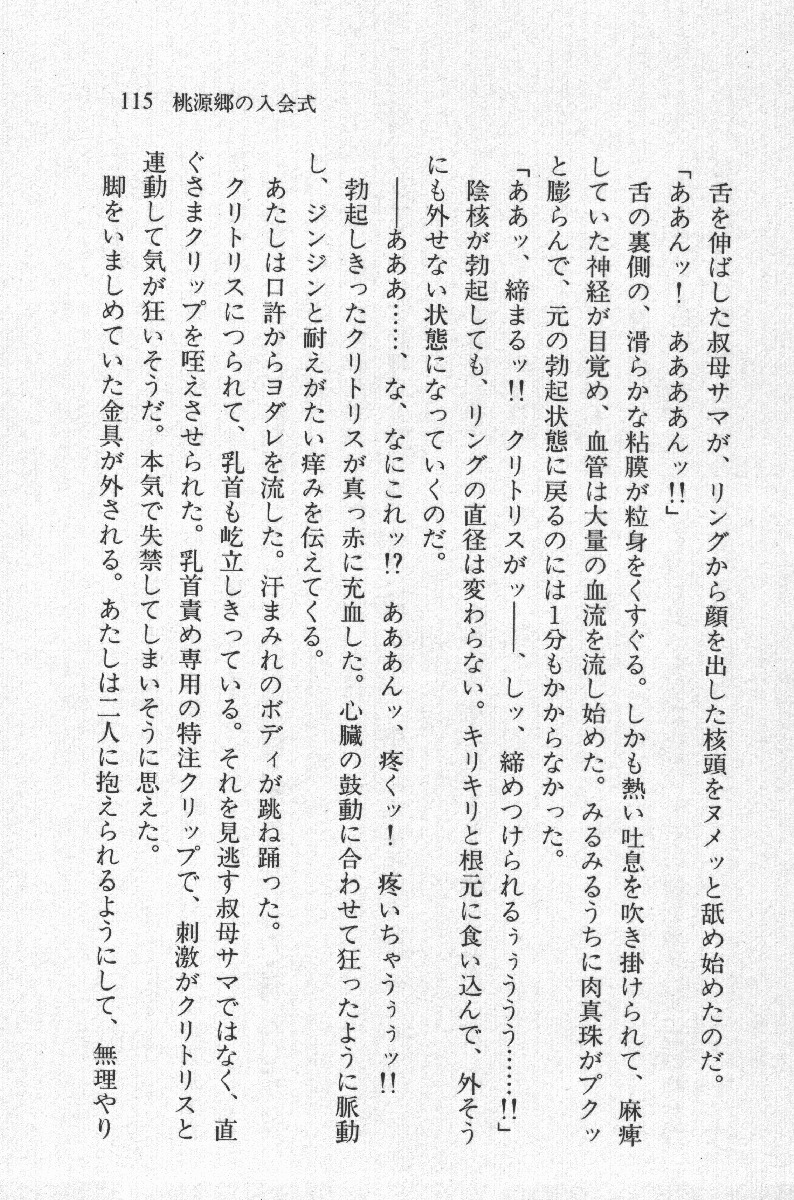 115 桃源郷の入会式
舌を伸ばした叔母サマが、リングから顔を出した核頭をヌメッと舐め始めたのだ。
「ああんッ！　ああああんッ!!」
舌の裏側の、滑らかな粘膜が粒身をくすぐる。しかも熱い吐息を吹き掛けられて、麻痺
していた神経が目覚め、血管は大量の血流を流し始めた。みるみるうちに肉真珠がプクッ
と膨らんで、元の勃起状態に戻るのには1分もかからなかった。
「ああッ、締まるッ!!　クリトリスがッ――、しッ、締めつけられるぅぅううう……!!」
陰核が勃起しても、リングの直径は変わらない。キリキリと根元に食い込んで、外そう
にも外せない状態になっていくのだ。
――あああ……、な、なにこれッ!?　あああんッ、疼くッ！　疼いちゃうぅぅッ!!
勃起しきったクリトリスが真っ赤に充血した。心臓の鼓動に合わせて狂ったように脈動
し、ジンジンと耐えがたい痒みを伝えてくる。
あたしは口許からヨダレを流した。汗まみれのボディが跳ね踊った。
クリトリスにつられて、乳首も屹立しきっている。それを見逃す叔母サマではなく、直
ぐさまクリップを咥えさせられた。乳首責め専用の特注クリップで、刺激がクリトリスと
連動して気が狂いそうだ。本気で失禁してしまいそうに思えた。
脚をいましめていた金具が外される。あたしは二人に抱えられるようにして、無理やり